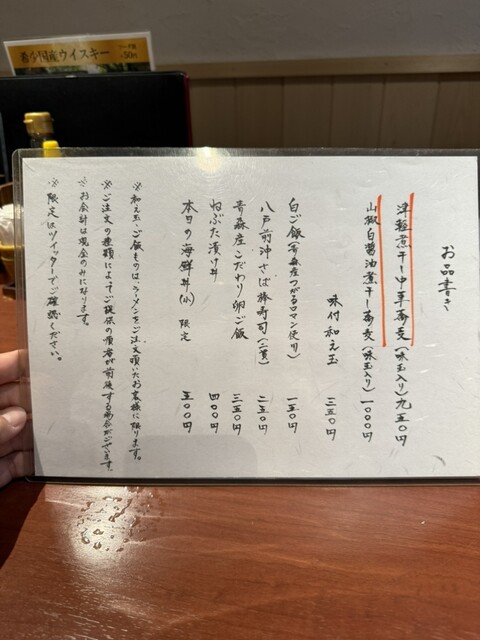 希少国産ウイスキー
お品書き
津軽煮干し中華蕎麦(味玉入り)九五〇円
山椒白醤油煮干し蕎麦(味玉入り)一〇〇〇円
味付和え玉 二五〇円
白ご飯(青森産つがるロマン使用) 一五〇円
八戸前沖さば棒寿司(二貫) 二五〇円
青森産こだわり卵ご飯 三五〇円
ねぶた漬け丼 四〇〇円
本日の海鮮丼(小) 限定 五〇〇円
※和え玉、ご飯ものは、ラーメンをご注文頂いたお客様に限ります。
※ご注文の種類によってご提供の順番が前後する場合がございます。
※お会計は現金のみになります。
※限定はツイッターでご確認ください。